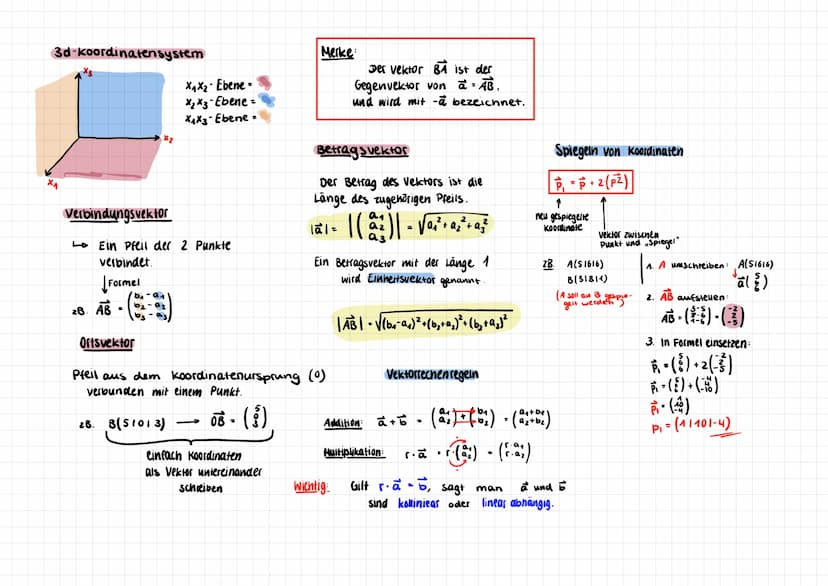 3d-koordinatensystem
x₃
x₂
x₁
x₁x₂ - Ebene =
x₂x₃ - Ebene =
x₁x₃ - Ebene =
Verbindungsvektor
↳ Ein Pfeil der 2 Punkte
verbindet.
↓ Formel
zB. A⃗B = (b₁ - a₁
b₂ - a₂
b₃ - a₃)
Ortsvektor
Pfeil aus dem Koordinatenursprung (0)
verbunden mit einem Punkt.
zB. B(5|0|3) → 0⃗B = (5
0
3)
einfach Koordinaten
als Vektor untereinander
schreiben
Merke:
Der Vektor B⃗A ist der
Gegenvektor von a⃗ = A⃗B,
und wird mit -a⃗ bezeichnet.
Betragsvektor
Der Betrag des Vektors ist die
Länge des zugehörigen Pfeils.
|a⃗| = |(a₁
a₂
a₃)| = √a₁² + a₂² + a₃²
Ein Betragsvektor mit der Länge 1
wird Einheitsvektor genannt.
|A⃗B| = √(b₁-a₁)²+(b₂+a₂)²+(b₃+a₃)²
Vektorrechenregeln
Addition: a⃗ + b⃗ = (a₁
a₂) + (b₁
b₂) = (a₁+b₁
a₂+b₂)
Multiplikation: r · a⃗ = r · (a₁
a₂) = (r·a₁
r·a₂)
Wichtig: Gilt r · a⃗ = b⃗, sagt man a⃗ und b⃗
sind kollinear oder linear abhängig.
Spiegeln von Koordinaten
p⃗₁ = p⃗ + 2(p⃗z)
neu gespiegelte
Koordinate
Vektor zwischen
Punkt und „Spiegel"
zB. A(5|6|6)
B(3|8|1)
(A soll an B gespie-
gelt werden)
1. A umschreiben: A(5|6|6)
a⃗ (5
6
6)
2. A⃗B aufstellen:
A⃗B = (3-5
8-6
1-6) = (-2
2
-5)
3. In Formel einsetzen:
p⃗₁ = (5
6
6) + 2(-2
2
-5)
p⃗₁ = (5
6
6) + (-4
4
-10)
p⃗₁ = (1
10
-4)
p₁ = (1|10|-4)